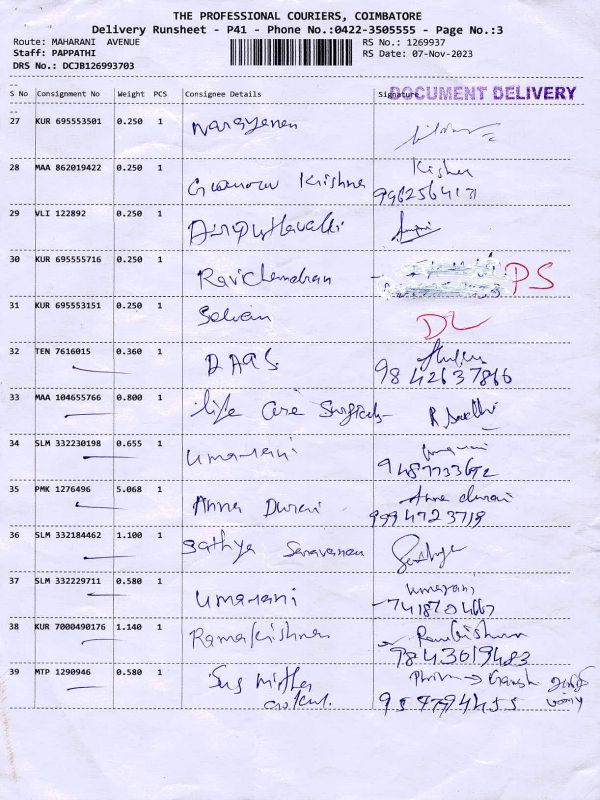 THE PROFESSIONAL COURIERS, COIMBATORE
Delivery Runsheet - P41 - Phone No.:0422-3505555 - Page No.:3
Route: MAHARANI AVENUE RS No.: 1269937
Staff: PAPPATHI RS Date: 07-Nov-2023
DRS No.: DCJB126993703
DOCUMENT DELIVERY
S No Consignment No Weight PCS Consignee Details Signature
27 KUR 695553501 0.250 1 Narayanan
28 MAA 862019422 0.250 1 Krishna Kishen
29 VLI 122892 0.250 1
30 KUR 695555716 0.250 1 Ravichandran PS
31 KUR 695553151 0.250 1 Selvan DL
32 TEN 7616015 0.360 1 DAAS
9842637866
33 MAA 104655766 0.800 1 life care surgicals R
34 SLM 332230198 0.655 1 umarani
35 PMK 1276496 5.068 1 Anna Durai Anna durai
9994723719
36 SLM 332184462 1.100 1 Sathya Saravanan Sathya
37 SLM 332229711 0.580 1 umarani umarani
38 KUR 7000490176 1.140 1 Ramakrishnan
9843019483
39 MTP 1290946 0.580 1